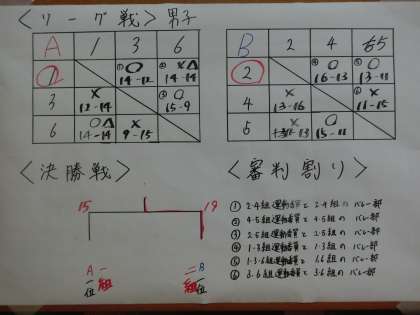 〈リーグ戦〉男子
A 1 3 6
1 ①○ 14-12 ②×△ 14-14
3 × 12-14 ○ 15-9
6 ○△ 14-14 × 9-15
B 2 4 5
2 ○ 16-13 ○ 13-11
4 × 13-16 × 11-15
5 × 11-13 ○ 15-11
〈決勝戦〉
15 19
A一位 一組
二組 B一位
〈審判割り〉
① 2-4組運動委員と 2-4組の バレー部
② 4-5組運動委員と 4-5組の バレー部
③ 2-5組運動委員と 2-5組の バレー部
④ 1-3組運動委員と 1-3組の バレー部
⑤ 1-3-6組運動委員と 1.6組の バレー部
⑥ 3-6組運動委員と 3.6組の バレー部